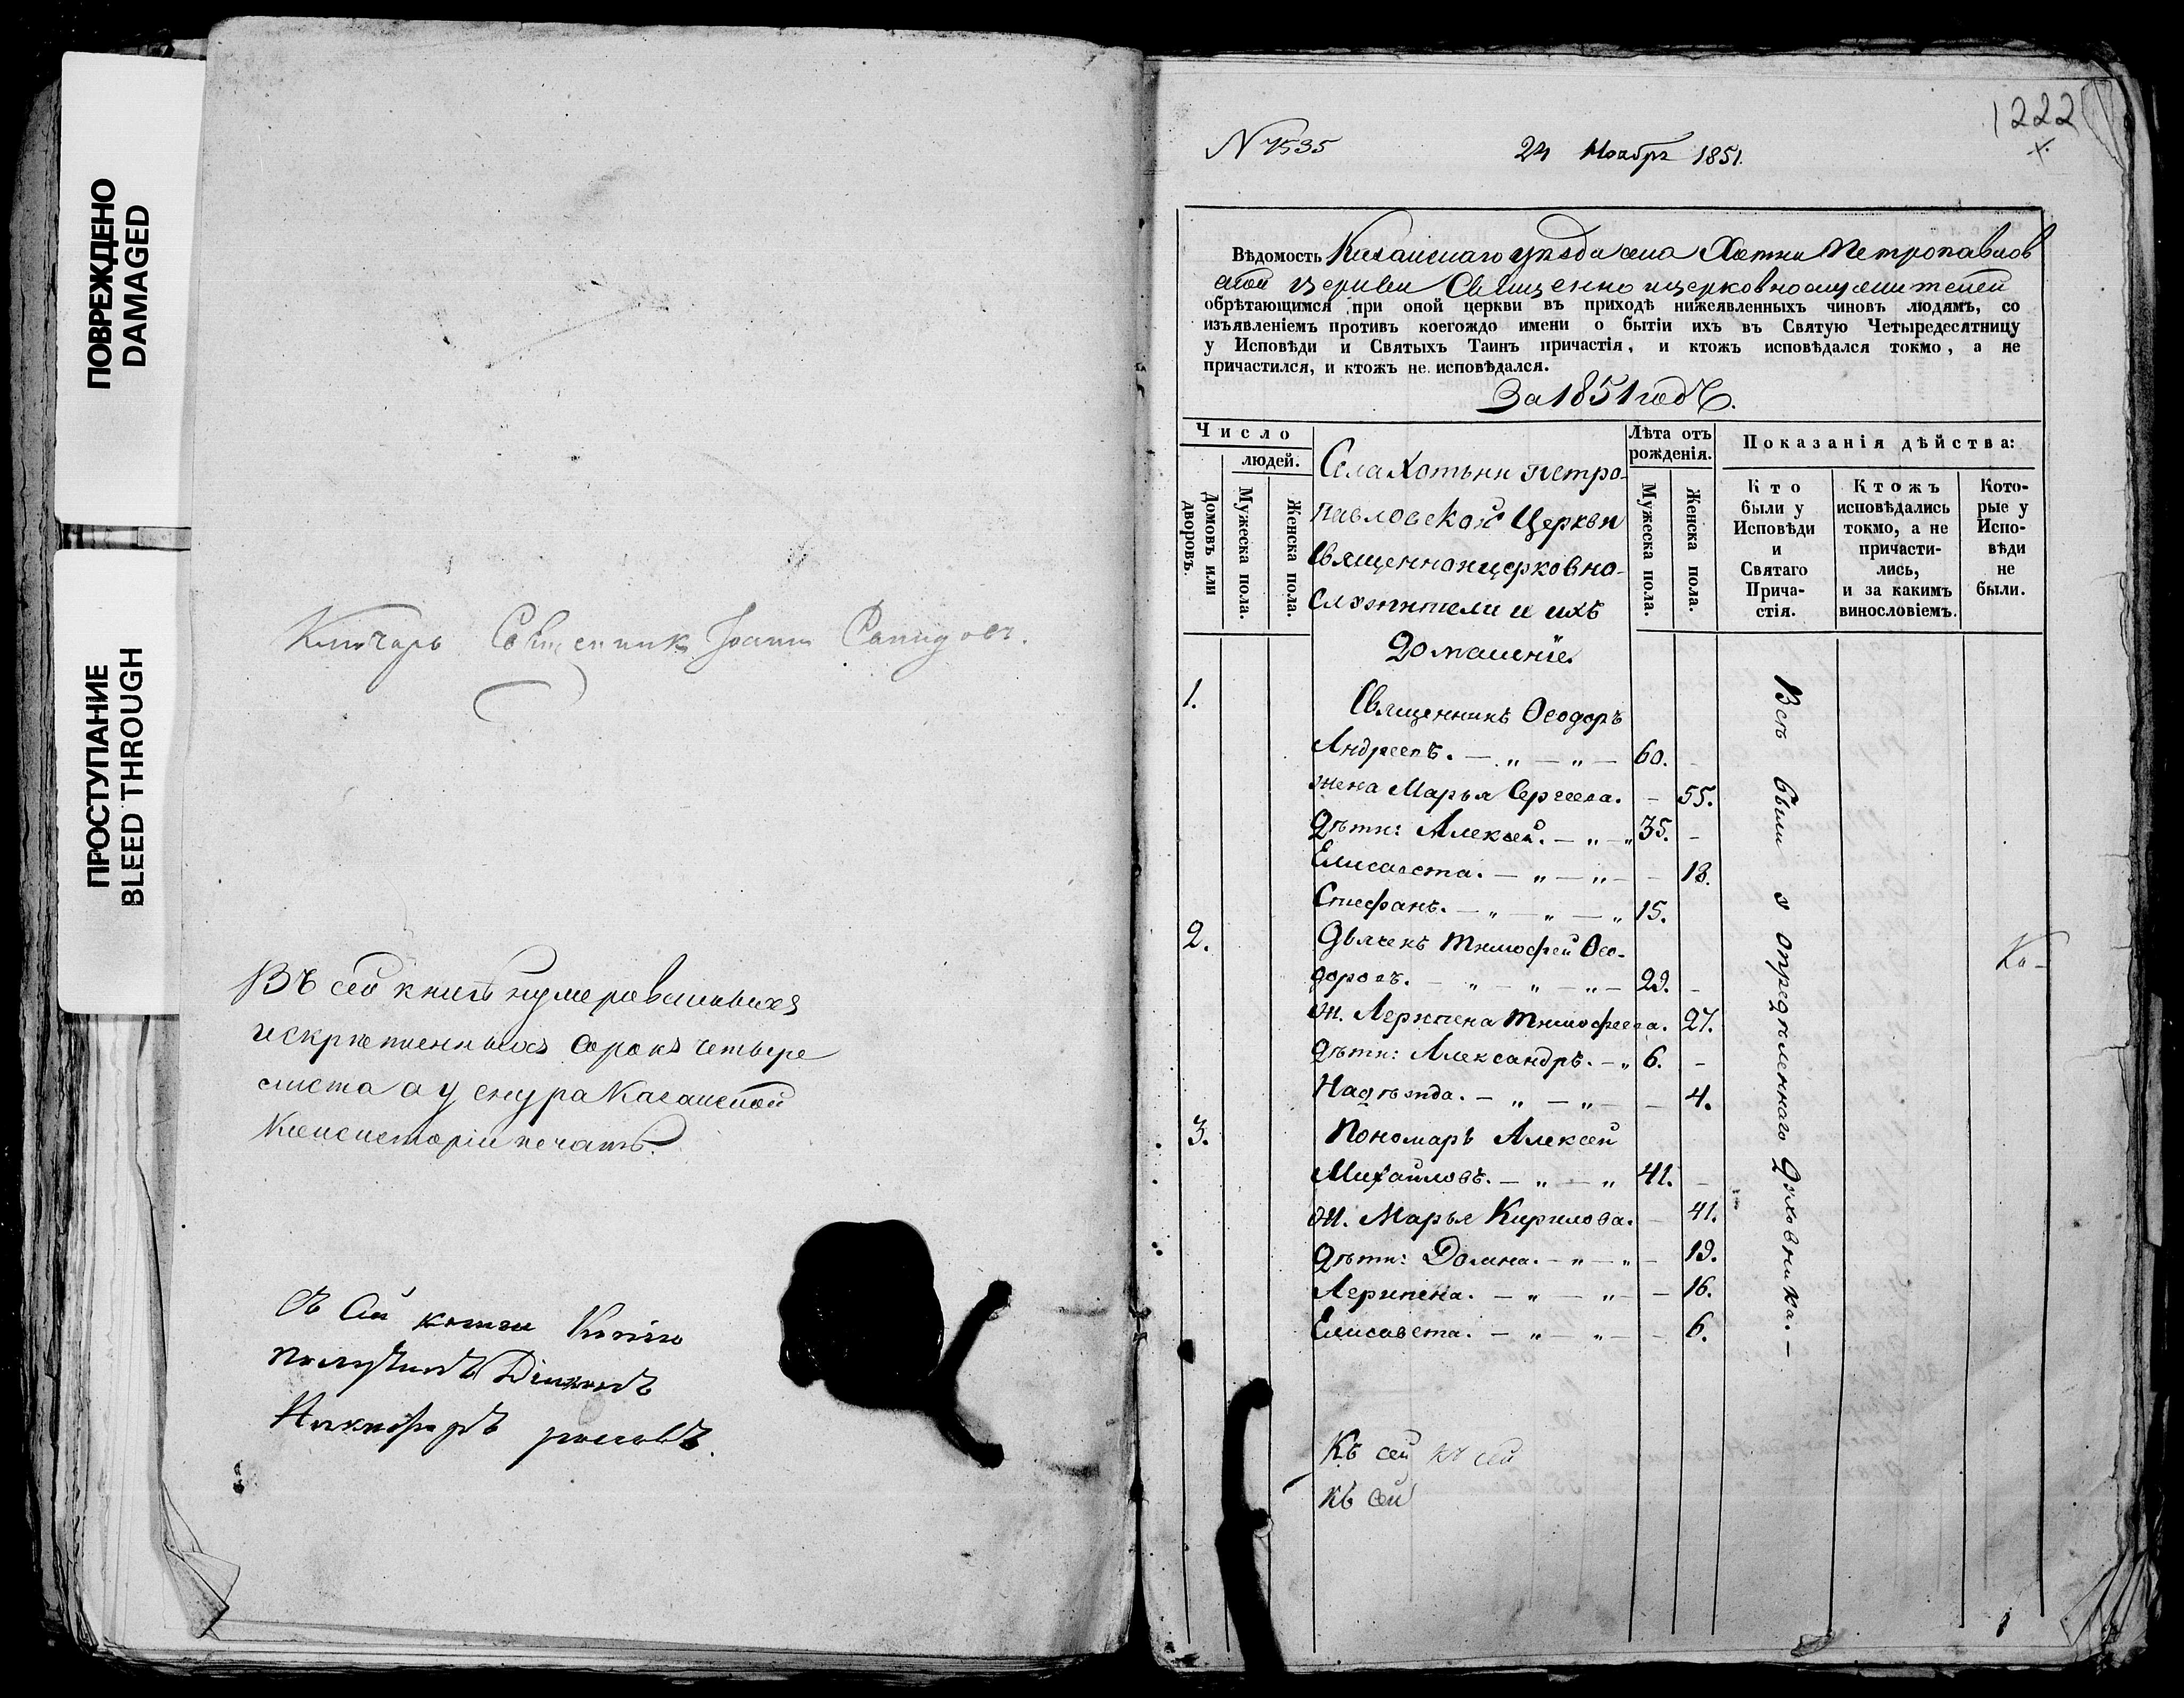 ПОВРЕЖДЕНО
DAMAGED
ПРОСТУПАНИЕ
BLEED THROUGH
Ключарь Священник Іоанн
Въ сей книгѣ нумерованныхъ
и скрѣпленныхъ сорокъ четыре
листа а у снура Казанской
Консисторіи печать.
Къ сей
1222
N 7535 24 Ноября 1851.
Вѣдомость Казанскаго уѣзда села Хотни Петропавлов
ской церкви Священно и церковнослужителей
обрѣтающимся при оной церкви въ приходѣ нижеявленныхъ чиновъ людямъ, со
изъявленіемъ противъ коегождо имени о бытіи ихъ въ Святую Четыредесятницу
у Исповѣди и Святыхъ Таинъ причастія, и ктожъ исповѣдался токмо, а не
причастился, и ктожъ не исповѣдался.
За 1851 годъ.
Число
людей.
Домовъ или дворовъ.
Мужеска пола.
Женска пола.
Села Хотьни Петро-
павловской Церкви
Священноицерковно-
служители и ихъ
домашніе.
Лѣта отъ рожденія.
Мужеска пола.
Женска пола.
Показанія дѣйства:
Кто были у Исповѣди и Святаго Прича-стія.
Ктожъ исповѣдались токмо, а не причасти-лись, и за какимъ винословіемъ.
Кото-рые у Испо-вѣди не были.
1. Священникъ Ѳеодоръ
Андреевъ. — „ — „ — 60. -
жена Марья Сергеева. - 55.
Дѣти: Алексѣй. — „ — „ 35. -
Елисавета. — „ — „ — - 18.
Стефанъ. — „ — „ — „ 15.
2. Дьячекъ Тимофей Ѳео-
доровъ. — „ — „ — „ — 29. -
Ж. Агрипена Тимофеева. 27.
Дѣти: Александръ. — „ 6. -
Надѣжда. — „ — „ — - 4.
3. Пономарь Алексѣй
Михайловъ. — „ — „ 41. -
Ж. Марья Кирилова. - 41.
Дѣти: Домна. — „ — „ - 19.
Агрипена. — „ — „ — - 16.
Елисавета. — „ — „ — - 6.
Всѣ были у опредѣленнаго духовника. —
Ка-
Къ сей къ сей
къ сей